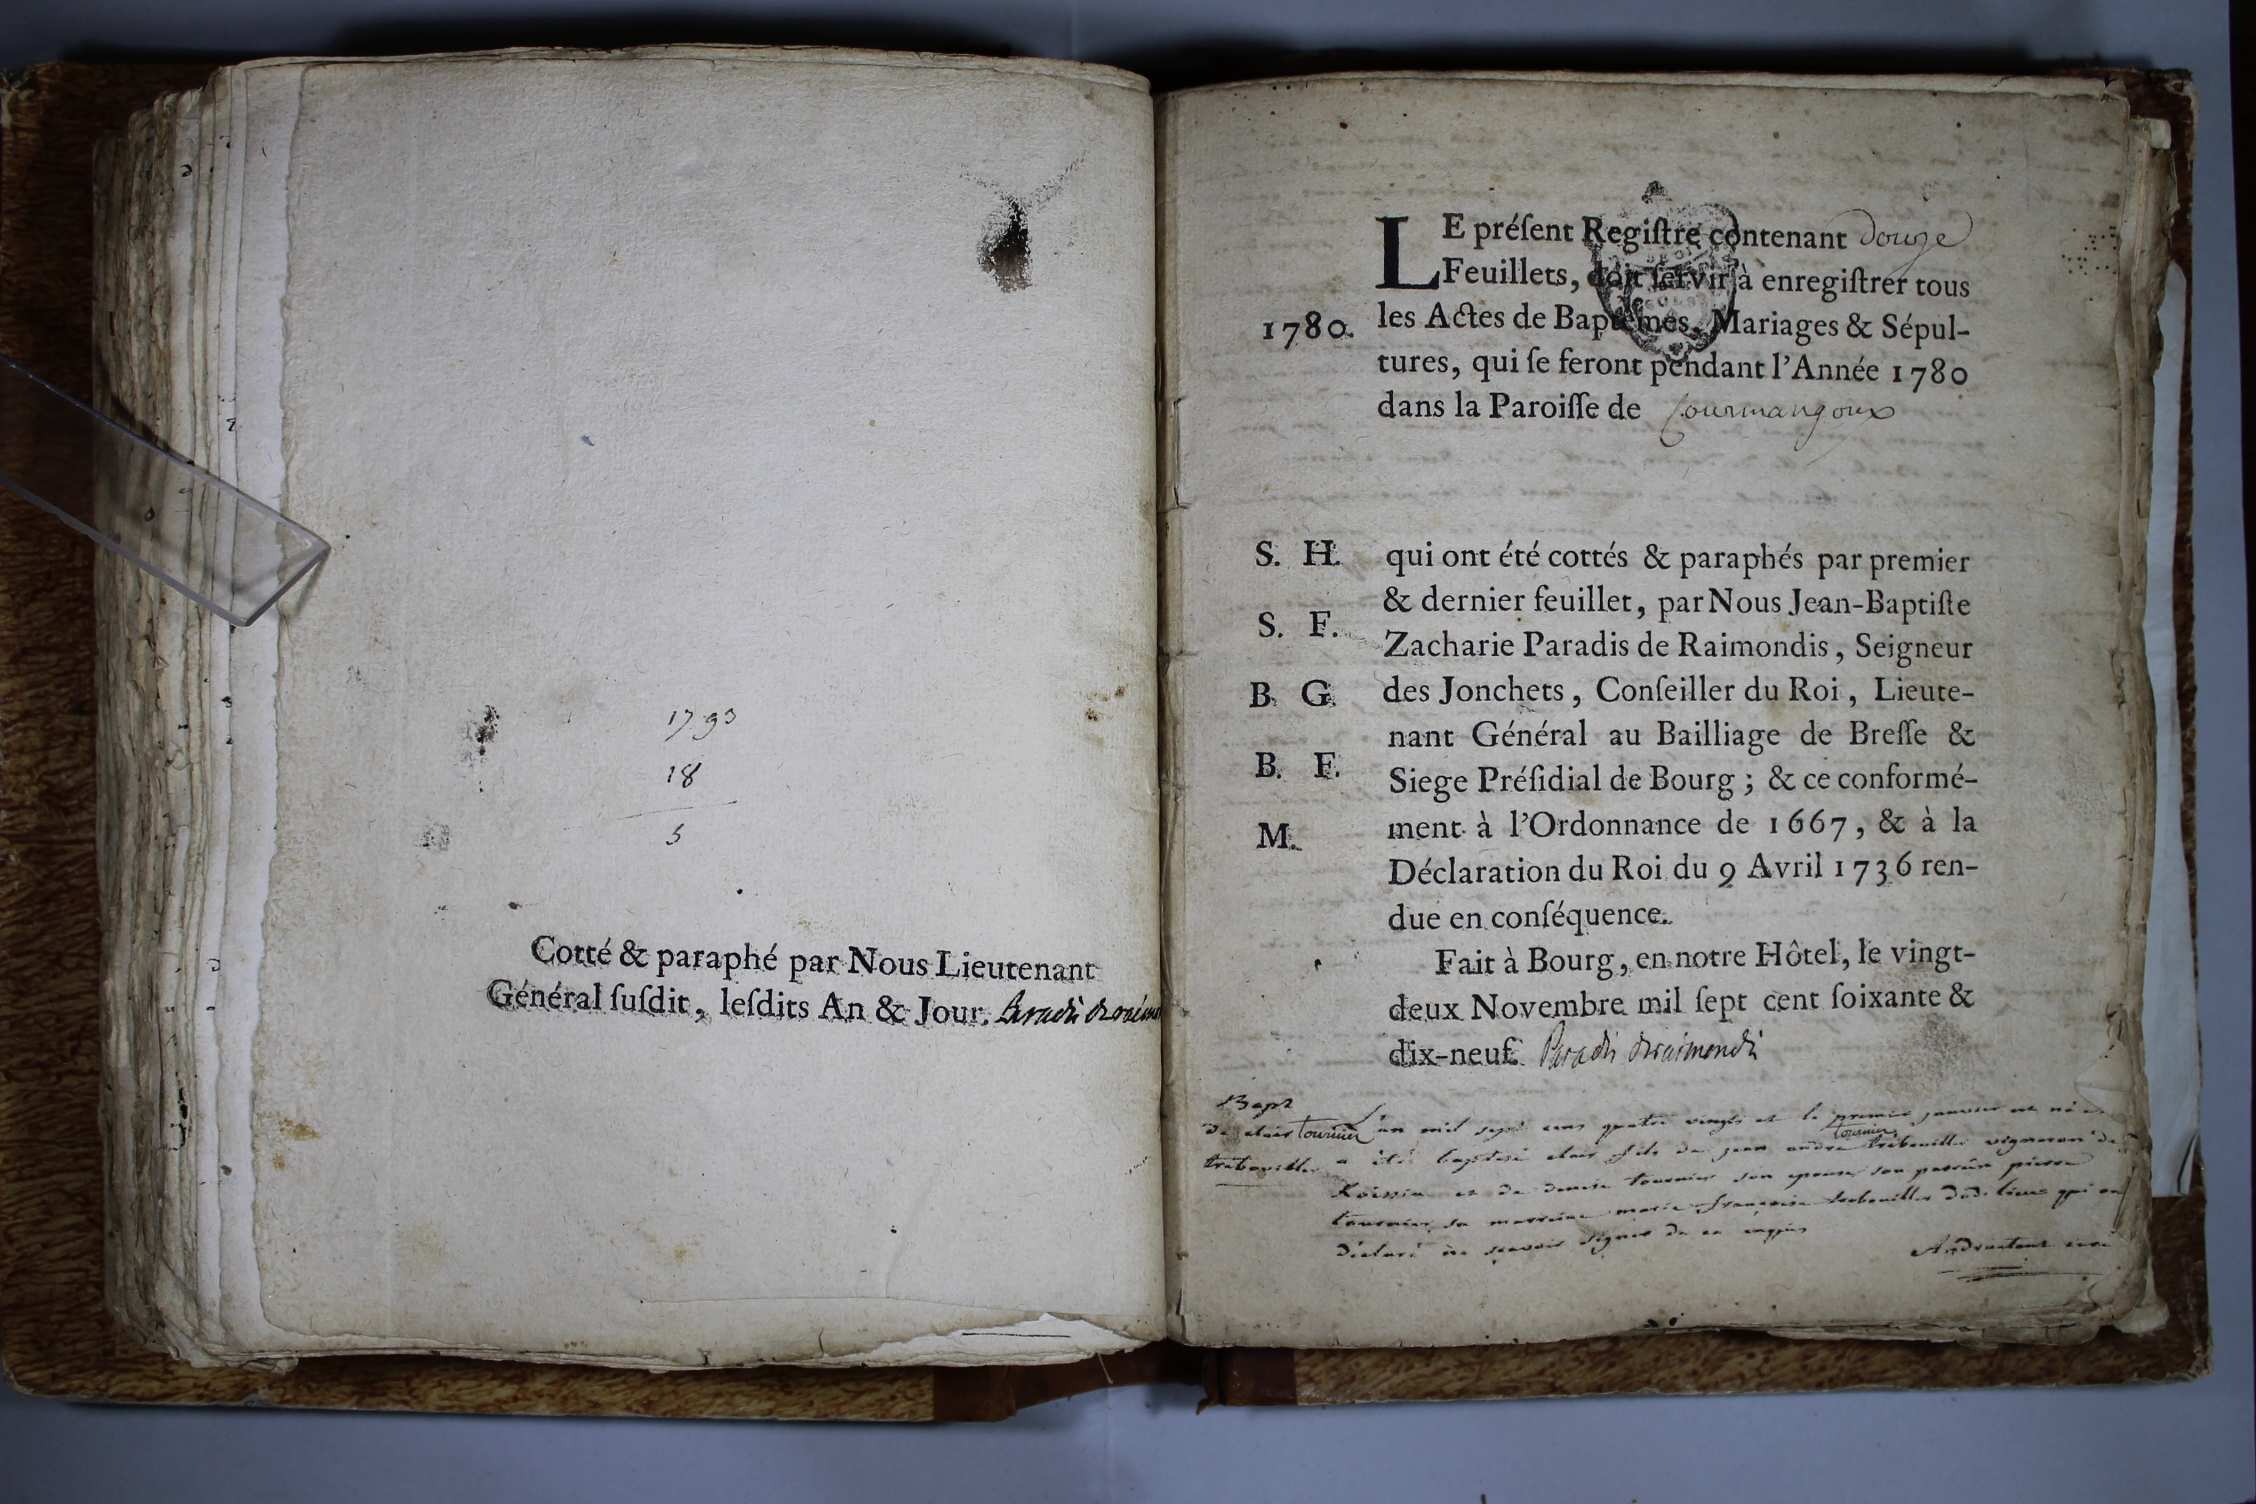 1793
18
5
Cotté & paraphé par Nous Lieutenant
Général ſuſdit, leſdits An & Jour. Paradis
1780.
LE préſent Regiſtre contenant douze
Feuillets, doit ſervir à enregiſtrer tous
les Actes de Baptêmes, Mariages & Sépul-
tures, qui ſe feront pendant l'Année 1780
dans la Paroiſſe de Courmangoux
S. H.
S. F.
B. G.
B. F.
M.
qui ont été cottés & paraphés par premier
& dernier feuillet, par Nous Jean-Baptiſte
Zacharie Paradis de Raimondis, Seigneur
des Jonchets, Conſeiller du Roi, Lieute-
nant Général au Bailliage de Breſſe &
Siege Préſidial de Bourg ; & ce conformé-
ment à l'Ordonnance de 1667, & à la
Déclaration du Roi du 9 Avril 1736 ren-
due en conſéquence.
Fait à Bourg, en notre Hôtel, le vingt-
deux Novembre mil ſept cent ſoixante &
dix-neuf. Paradis deraimondis
Bapt
de clair tournier
trebouillet
L'an mil sept cens quatre vingts et le premier janvier est né et
tournier
a été baptisé clair fils de jean andré trebouillet vigneron de
et de denise tournier son epouse son parrain pierre
tournier sa marreine marie françoise trebouillet dud. lieu qui ont
déclaré ne scavoir signer de ce enquis
curé